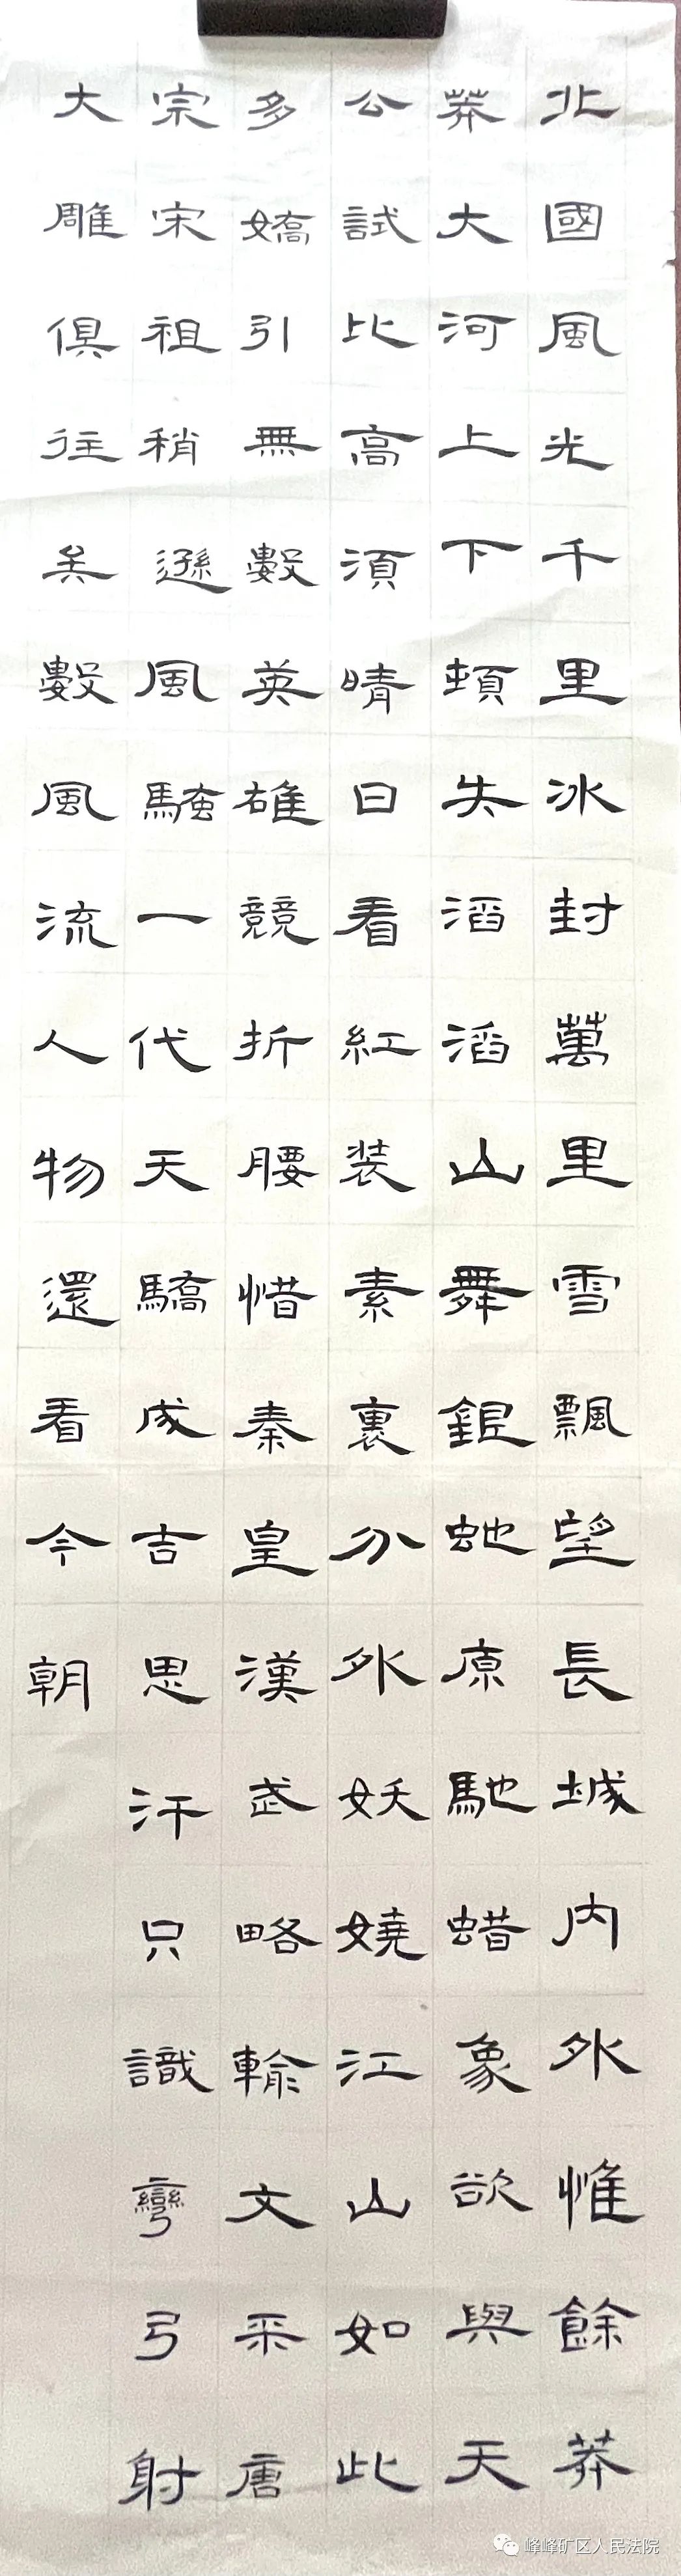 北國風光千里冰封萬里雪飄望長城内外惟餘莽
莽大河上下頓失滔滔山舞銀虵原馳蜡象欲與天
公試比高須晴日看紅装素裏分外妖嬈江山如此
多嬌引無數英雄競折腰惜秦皇漢武略輸文采唐
宗宋祖稍遜風騷一代天驕成吉思汗只識彎弓射
大雕俱往矣數風流人物還看今朝
峰峰矿区人民法院